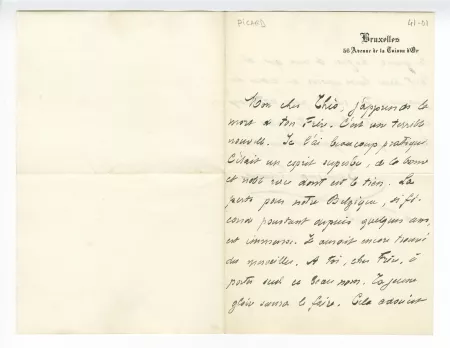 PICARD
41-01
Bruxelles
56 Avenue de la Toison d'Or
Mon cher Théo, j'apprends la
mort de ton Frère. C'est une terrible
nouvelle. Je l'ai beaucoup pratiqué
C'était un esprit superbe, de la bonne
et noble race dont est le tien. La
perte pour notre Belgique, si fé-
conde pourtant depuis quelques ans,
est immense. Il aurait encore trouvé
des merveilles. A toi, cher Frère, à
porter seul ce beau nom. Ta jeune
gloire saura le faire. Cela adoucit